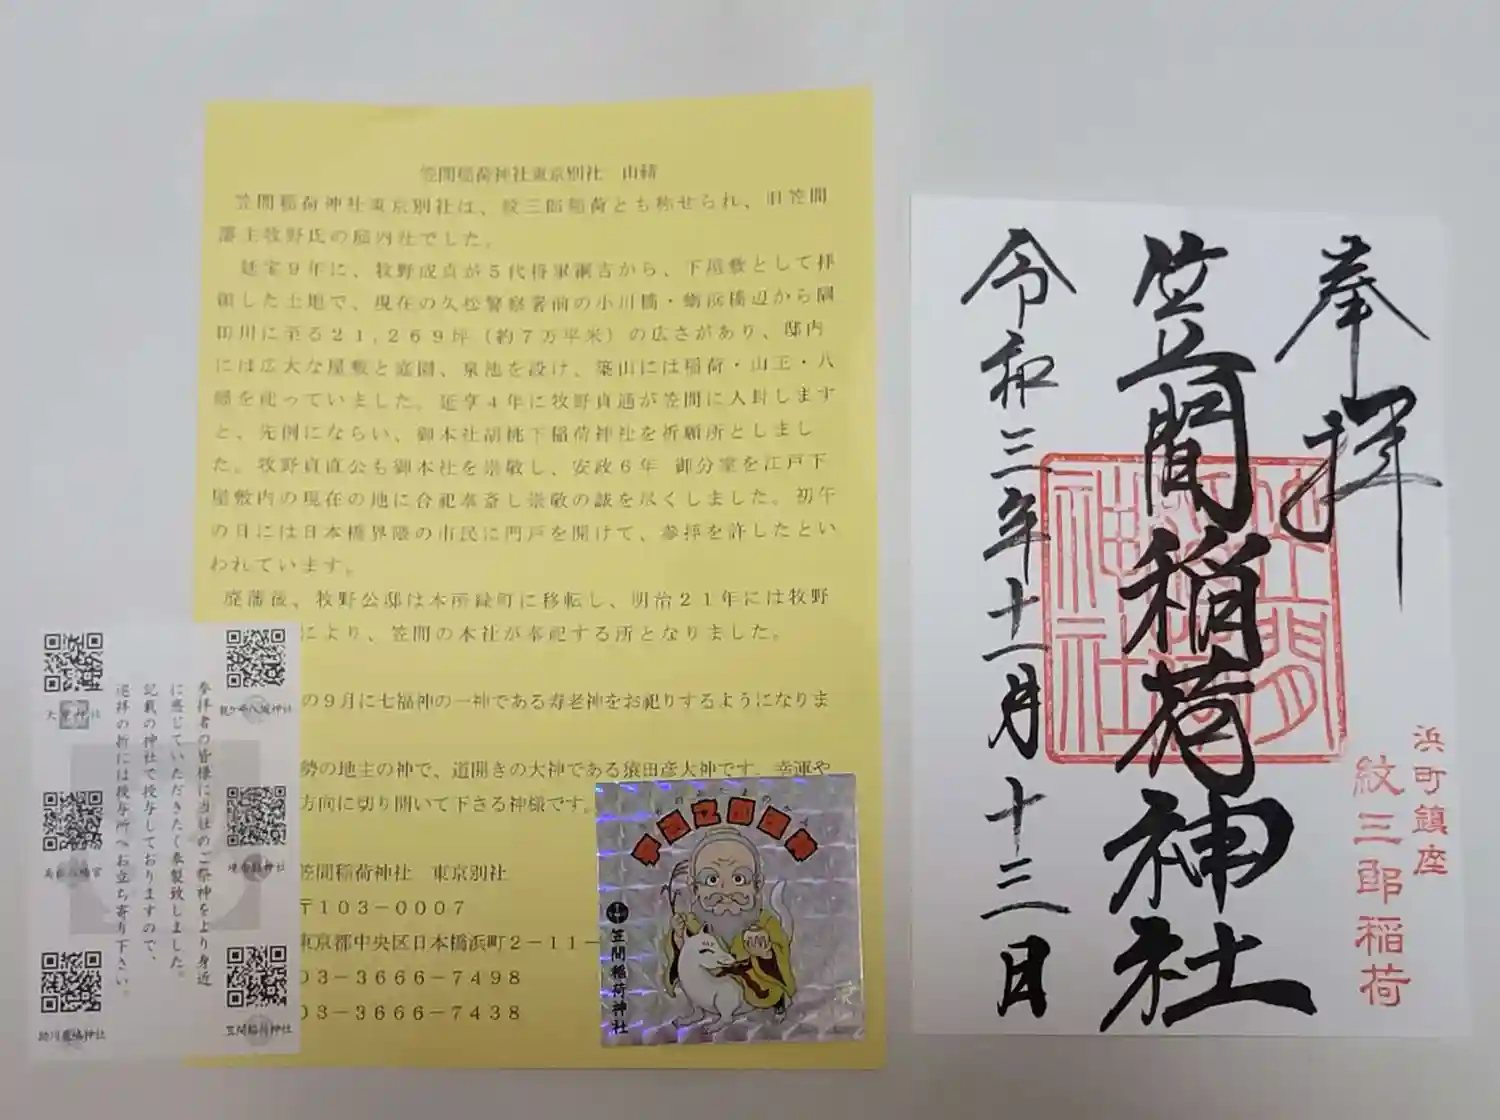 笠間稲荷神社東京別社　由緒
笠間稲荷神社東京別社は、紋三郎稲荷とも称せられ、旧笠間
藩主牧野氏の邸内社でした。
延宝９年に、牧野成貞が５代将軍綱吉から、下屋敷として拝
領した土地で、現在の久松警察署前の小川橋・蛎浜橋辺から隅
田川に至る２１,２６９坪（約７万平米）の広さがあり、邸内
には広大な屋敷と庭園、泉池を設け、築山には稲荷・山王・八
幡を祀っていました。延享４年に牧野貞通が笠間に入封します
と、先例にならい、御本社胡桃下稲荷神社を祈願所としまし
た。牧野貞直公も御本社を崇敬し、安政６年 御分霊を江戸下
屋敷内の現在の地に合祀奉斎し崇敬の誠を尽くしました。初午
の日には日本橋界隈の市民に門戸を開けて、参拝を許したとい
われています。
廃藩後、牧野公邸は本所緑町に移転し、明治２１年には牧野
により、笠間の本社が奉祀する所となりました。
の９月に七福神の一神である寿老神をお祀りするようになりま
勢の地主の神で、道開きの大神である猿田彦大神です。幸運や
方向に切り開いて下さる神様です。
笠間稲荷神社　東京別社
〒１０３－０００７
東京都中央区日本橋浜町２－１１－
０３－３６６６－７４９８
０３－３６６６－７４３８
参拝者の皆様に当社のご祭神をより身近
に感じていただきたく奉製致しました。
記載の神社で授与しておりますので、
巡拝の折には授与所へお立ち寄り下さい。
笠間稲荷神社
笠間稲荷神社
奉拝
笠間稲荷神社
令和三年十一月十三日
浜町鎮座
紋三郎稲荷